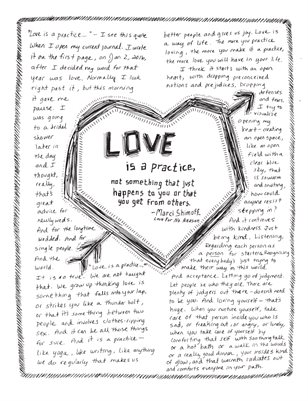 "Love is a practice..." - I see this quote
when I open my current journal. I wrote
it on the first page, on Jan 2, 2016,
after I decided my word for that
year was love. Normally I look
right past it, but this morning
it gave me
pause. I
was going
to a bridal
shower
later in
the day
and I
thought,
really,
that's
great
advice for
newlyweds.
And for the longtime
wedded. And for
single people. And
the
world.
It is so true. We are not taught
that. We grow up thinking love is
something that falls into your lap,
or strikes you like a thunder bolt,
or that it's something between two
people and involves clothes-ripping
sex. And it can be all those things
for sure. And it is a practice—
like yoga, like writing, like anything
we do regularly that makes us
"Love is a practice..."
LOVE
is a practice,
not something that just
happens to you or that
you get from others.
- Marci Shimoff
Love for No Reason
better people and gives us joy. Love is
a way of life. The more you practice
loving, the more you make it a practice,
the more love you will have in your life.
I think it starts with an open
heart, with dropping preconceived
notions and prejudices. Dropping
defenses
and fears,
I try to
visualize
opening my
heart - creating
an open space,
like an open
field with a
clear blue
sky, that
is so warm
and inviting,
anyone resist
stepping in?
And it continues
with kindness. Just
being kind. Listening.
Regarding each person as
a person for starters. Recognizing
that everybody's just trying to
make their way in this world.
And acceptance. Letting go of judgement.
Let people be who they are. There are
plenty of judges out there - doesn't need
to be you. And loving yourself - that's
huge. When you nurture yourself, take
care of that person inside you who is
sad, or freaking out, or angry, or lonely,
when you take care of yourself by
comforting that self with soothing talk,
or a hot bath, or a walk in the woods
or a really good dinner, your insides kind
of glow, and that warmth radiates out
and comforts everyone in your path.